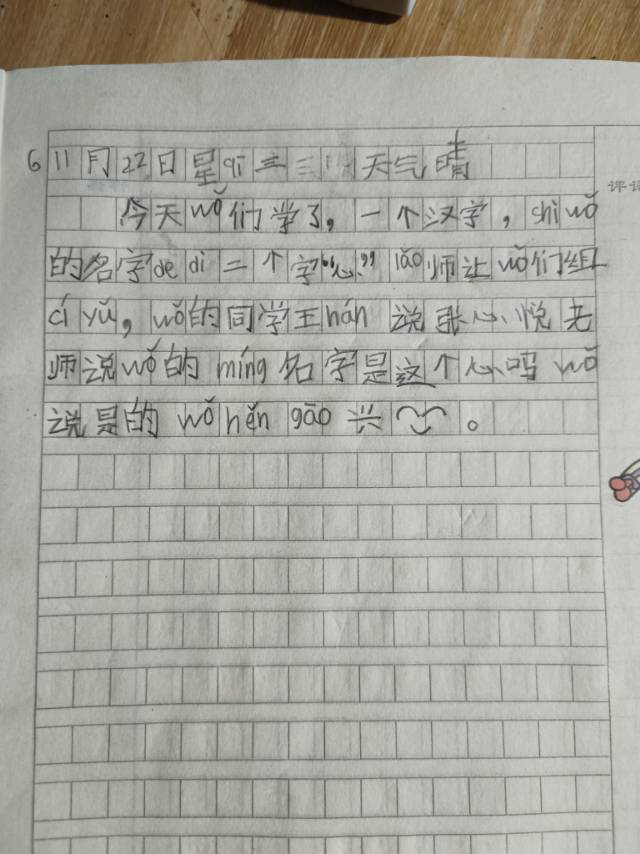 6 11月22日星qī三 天气晴
今天wǒ们学了，一个汉字，shì wǒ
的名字de dì二个字“心” lǎo师让wǒ们组
cí yǔ，wǒ的同学王hán说张心悦老
师说wǒ的míng名字是这个心吗wǒ
说是的wǒ hěn gāo兴。
评语